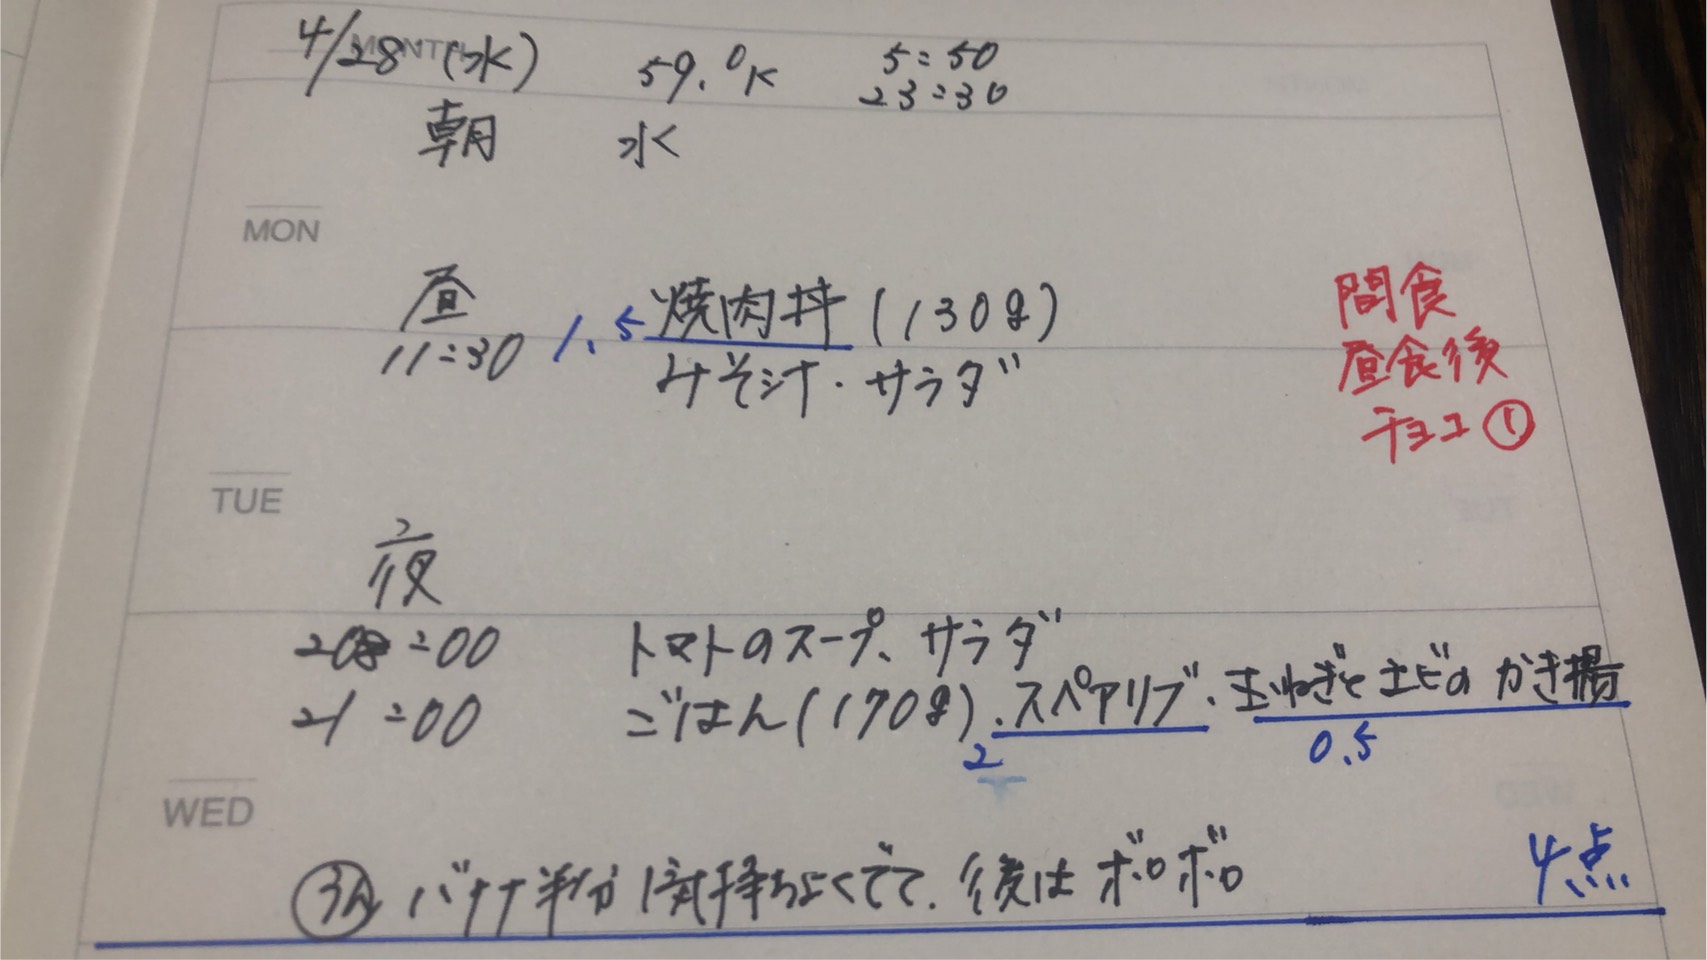 4/28(水) 59.0K 5:50
23:30
MONTH
朝 水
MON
昼 1.5 焼肉丼(130g)
11:30 みそ汁・サラダ
間食
昼食後
チョコ①
TUE
夜
20:00 トマトのスープ、サラダ
21:00 ごはん(170g)、スペアリブ・玉ねぎとエビのかき揚
2 0.5
WED
バナナ半分 気持ちよくでて、後はボロボロ
4点